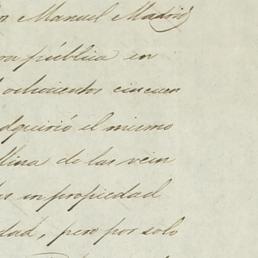 n Manuel Madrid
ra pública en
ochocientos cincuen
dquirió el mismo
llina de las vein
in propiedad
dad, pero por solo